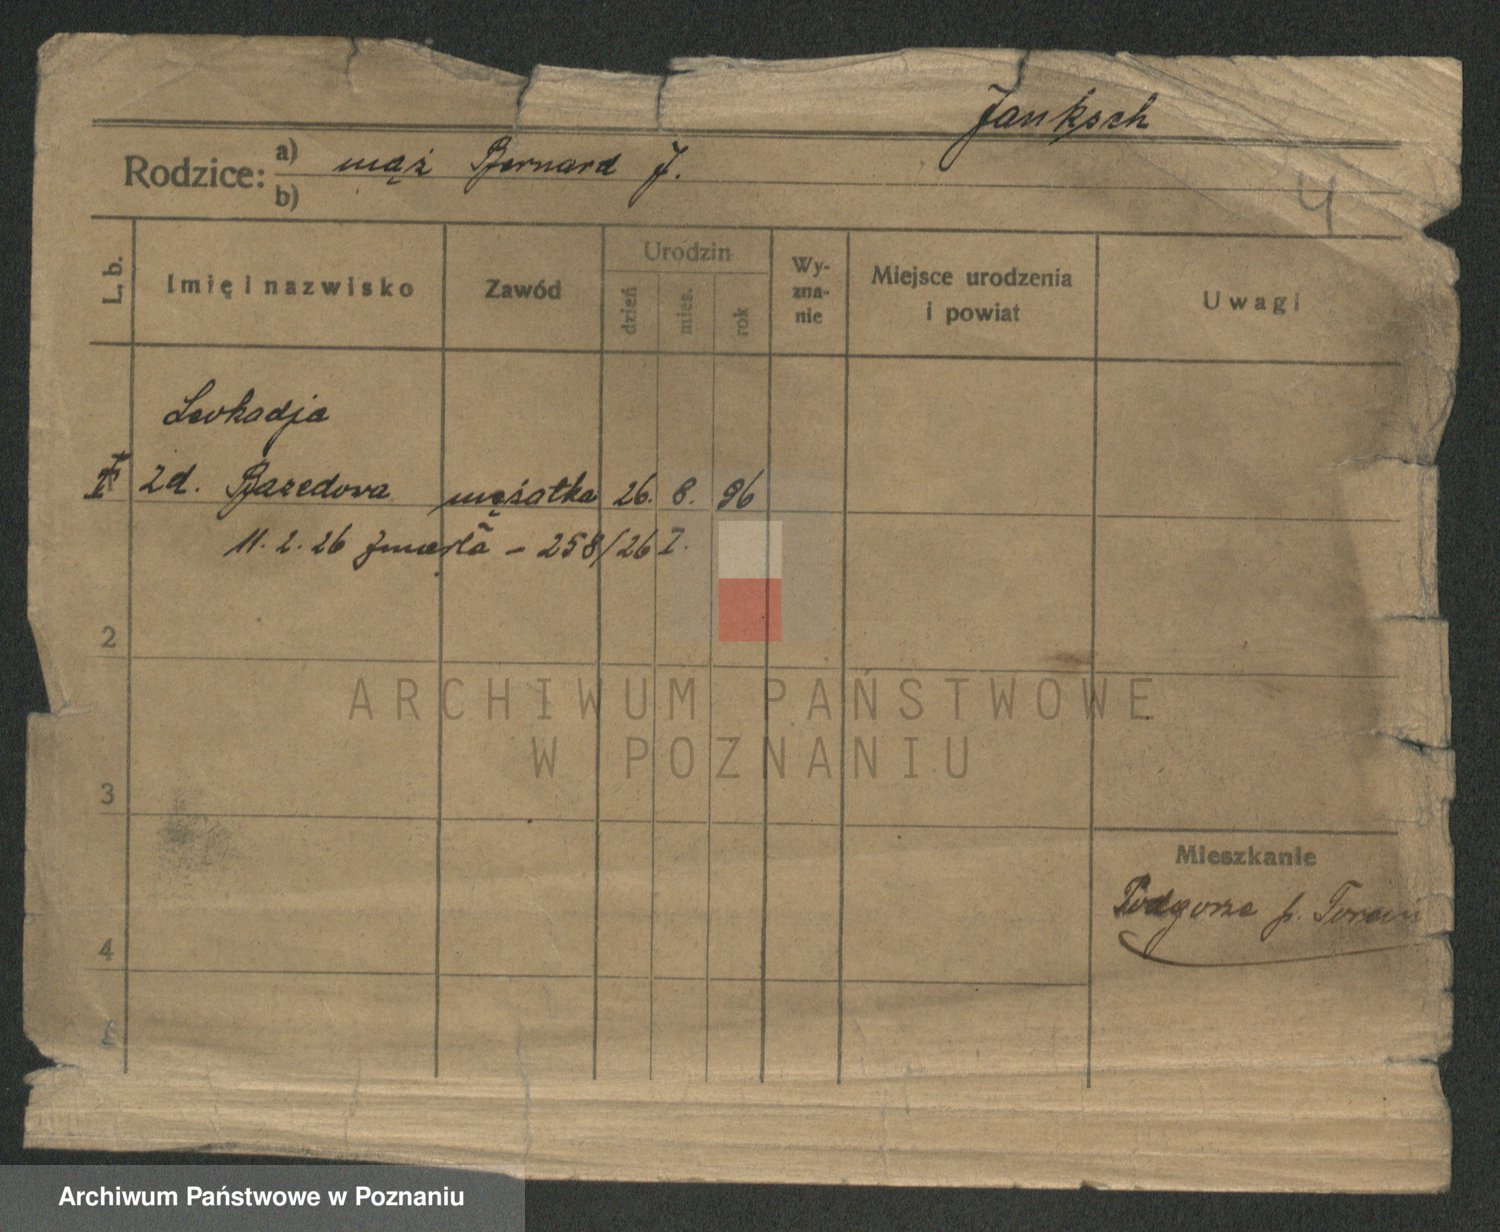 Janksch
Rodzice: a) mąż Bernard J.
b)
4
L. b.
Imię i nazwisko
Zawód
Urodzin
dzień
mies.
rok
Wy-
zna-
nie
Miejsce urodzenia
i powiat
Uwagi
Leokadja
zd. Bazedova mężatka 26. 8. 96
11. 2. 26 zmarła - 258/26 I.
2
ARCHIWUM PAŃSTWOWE
W POZNANIU
3
Mieszkanie
Podgorze p. Toruń
4
Archiwum Państwowe w Poznaniu